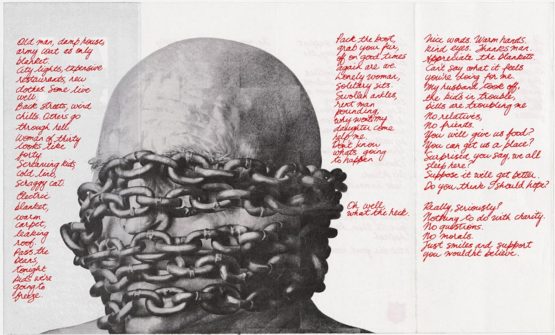 Old man, damp house,
army coat as only
blanket.
City lights, expensive
restaurants, new
clothes. Some live
well.
Back streets, wind
chills. Others go
through hell.
Woman of thirty
looks like
forty.
Screaming kids
cold lino,
scraggy cat.
Electric
blanket,
warm
carpet,
leaking
roof.
Pass the
beans,
tonight
kids we're
going to
freeze.
Pack the boot,
grab your fur,
off on good times
again are we
Lonely woman,
solitary sits
Swollen ankles,
rent man
pounding,
why won't my
daughter come
help me.
Don't know
what's going
to happen
Oh, well
what the heck.
Nice words. Warm hands.
kind eyes. Thanks man.
Appreciate the blankets.
Can't say what it feels
you're doing for me.
My husband took off,
the kid's in trouble,
bills are troubling me
No relatives,
No friends.
You will give us food?
You can get us a place?
Surprised you say, we all
sleep here?
Suppose it will get better.
Do you think I should hope?
Really, seriously?
Nothing to do with charity.
No questions.
No morals.
Just smiles and support
you wouldn't believe.